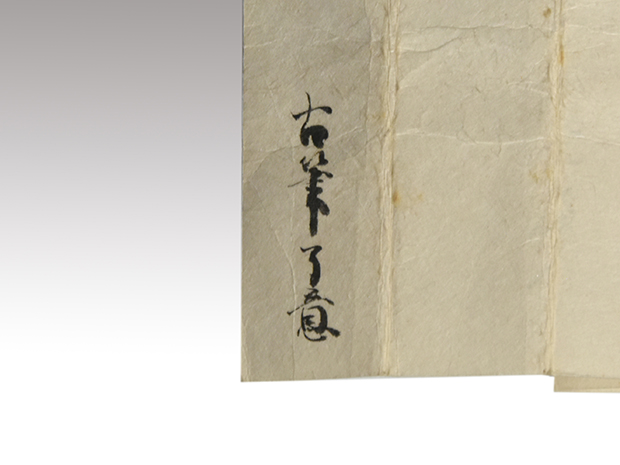 古筆了意